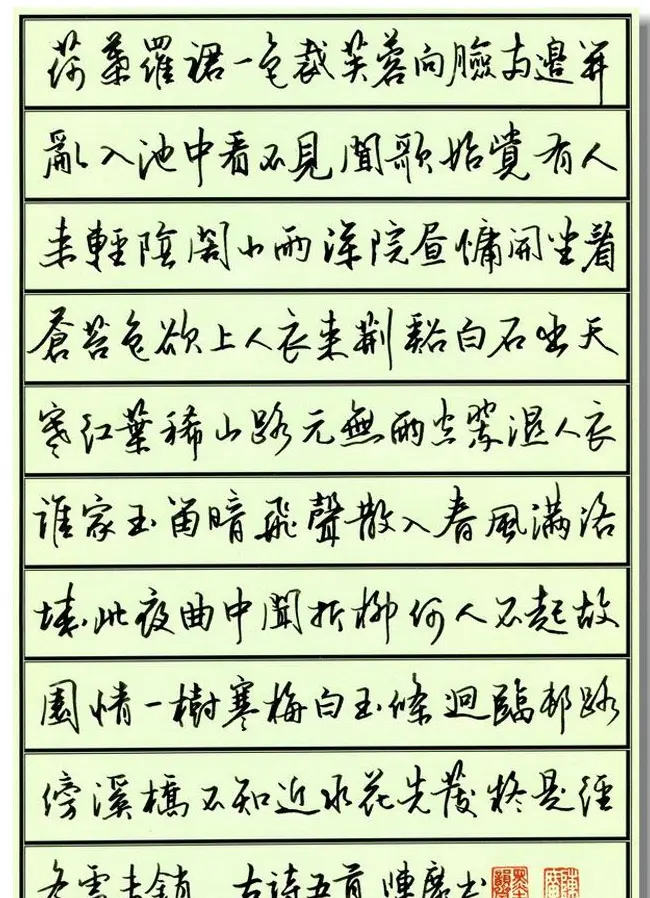 荷葉羅裙一色裁芙蓉向臉兩邊開
亂入池中看不見聞歌始覺有人
来輕陰閣小雨深院昼慵開坐看
蒼苔色欲上人衣来荊谿白石出天
寒红葉稀山路元無雨空翠濕人衣
誰家玉笛暗飛聲散入春風滿洛
城此夜曲中聞折柳何人不起故
園情一樹寒梅白玉條迥臨邨路
傍溪橋不知近水花先發疑是經
冬雪未銷 古詩五首 陳